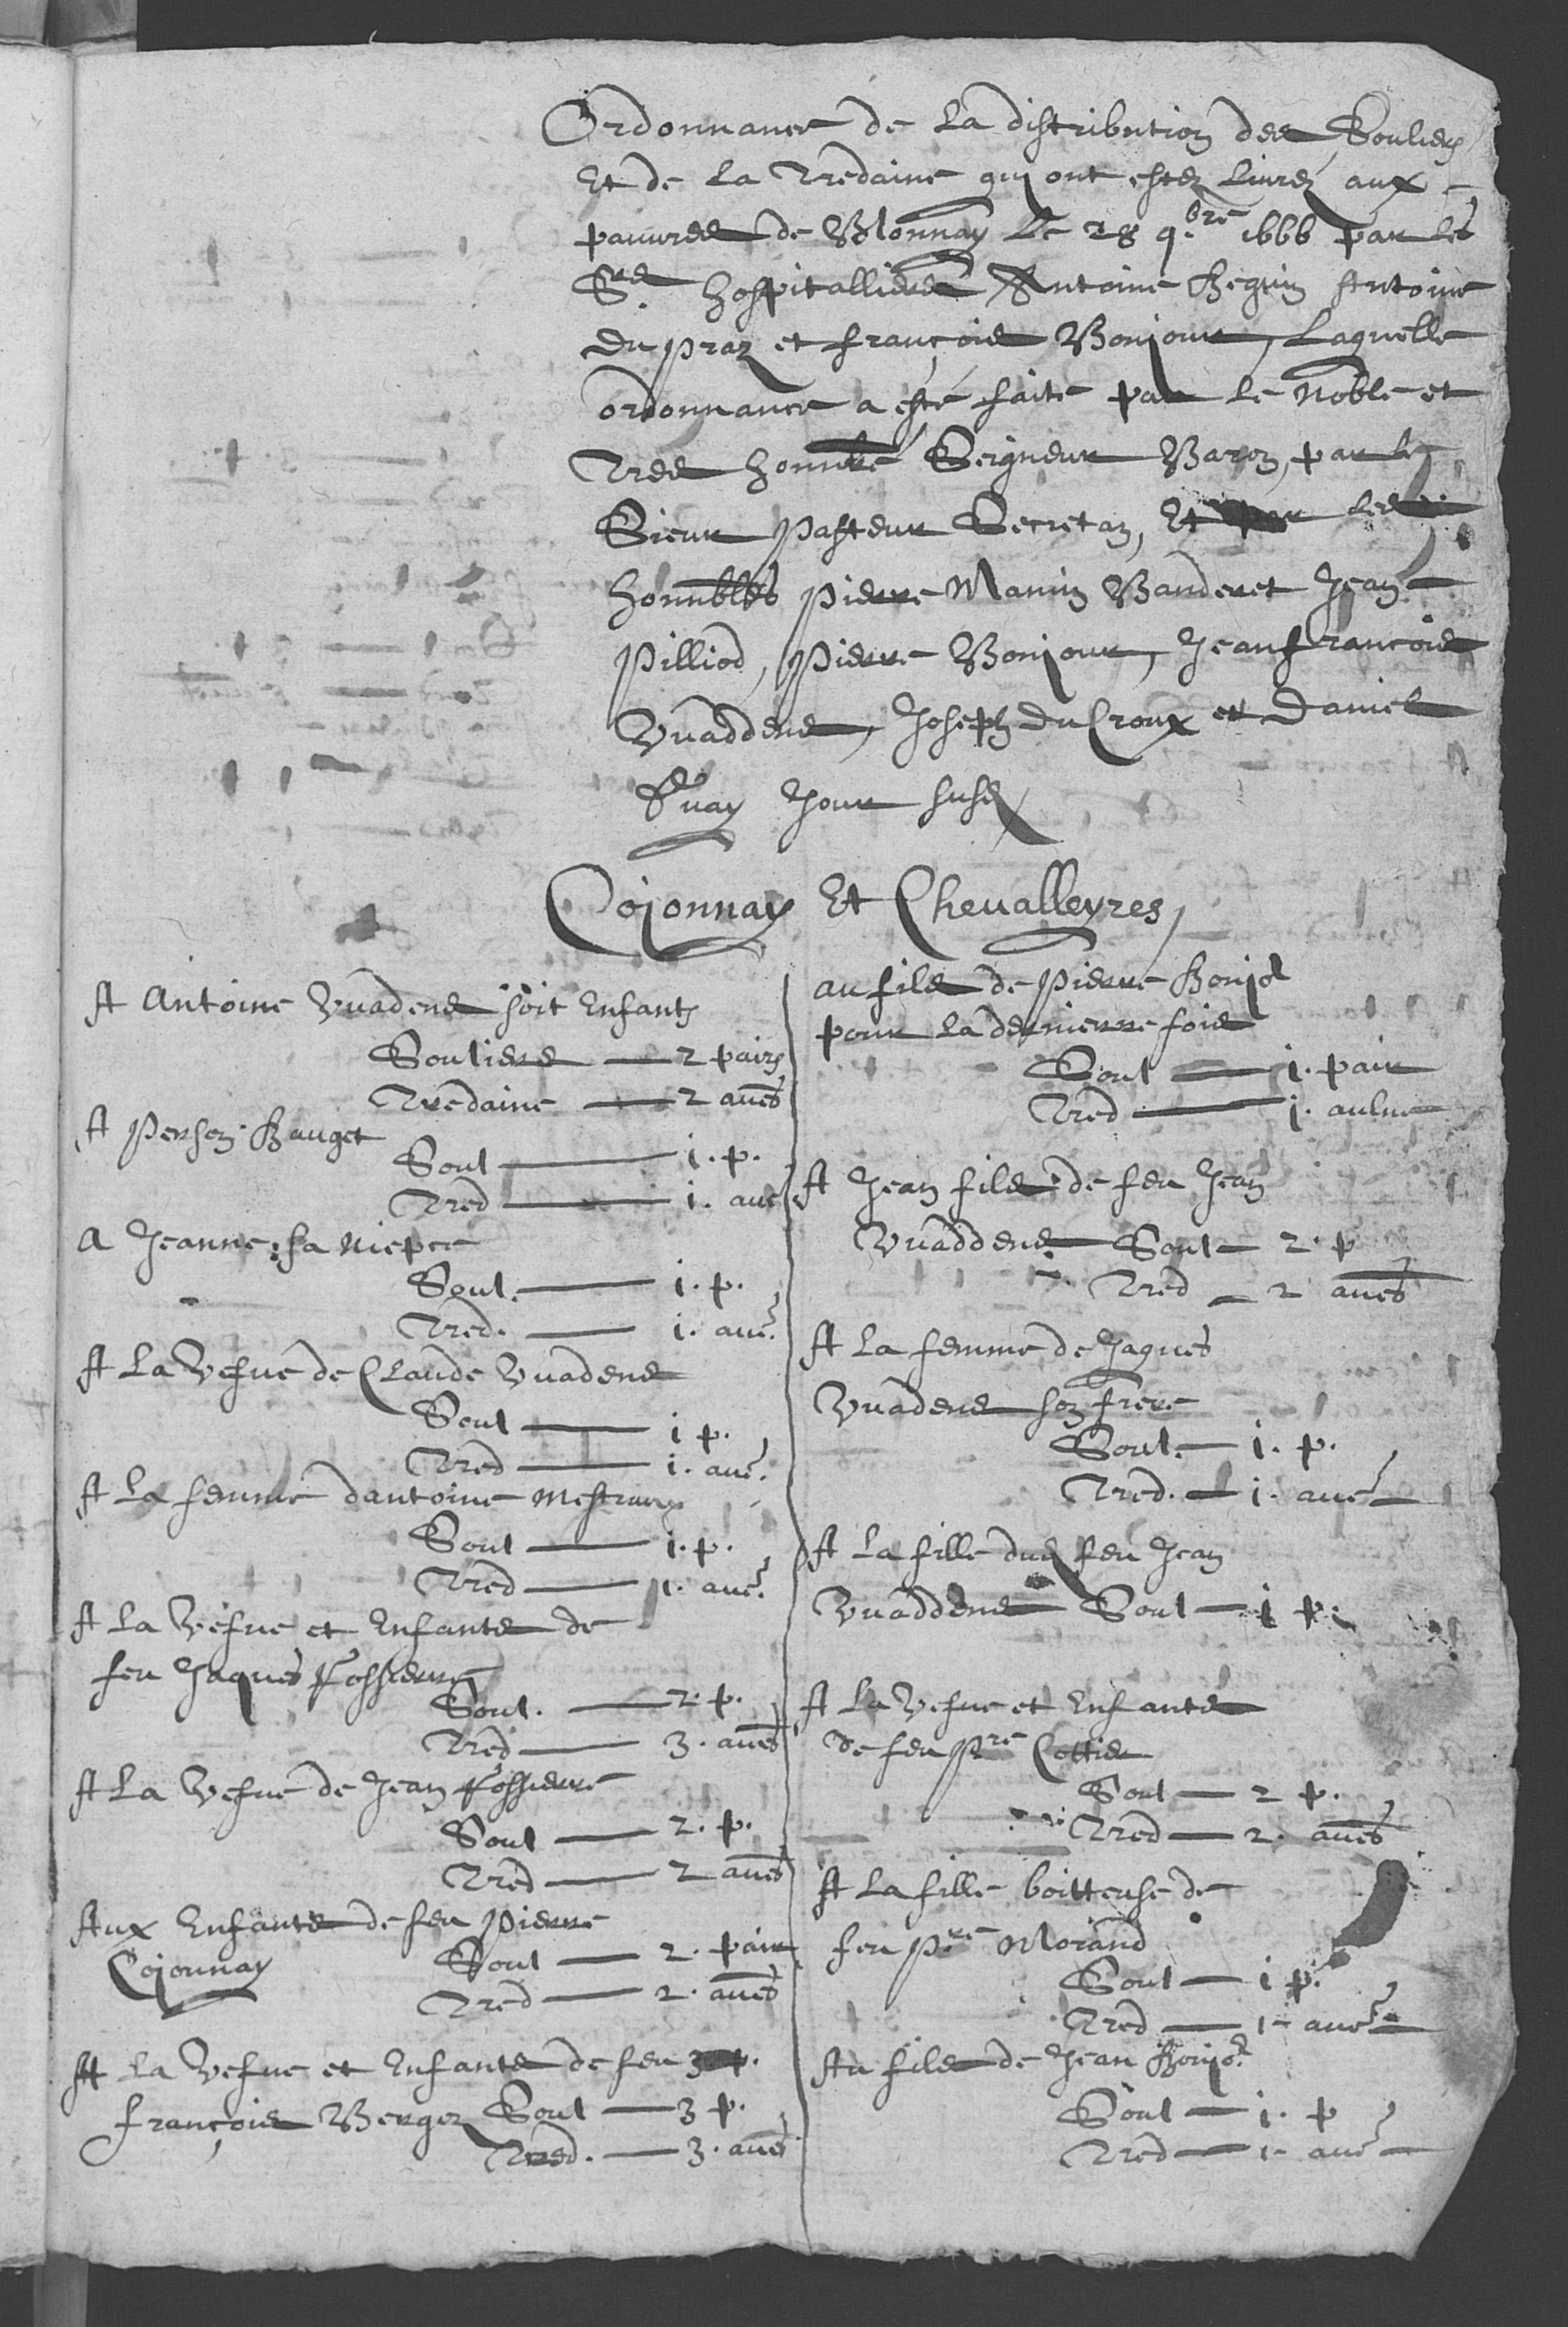 Ordonnance de la distribution des Souliers
Et de la Tredaine qui ont estez livréz aux
pauvres de Blonnay Le 28 9.bre 1666 par les
Srs. hospitalliers Antoine Beguin Antoine
du praz et françois Bonjour, Laquelle
ordonnance a esté faite par le Noble et
Tres honnoré Seigneur Baron, par le
Sieur Pasteur Secretan, Et par les
honnbles Pierre Mamin Banderet Jean
Pilliod, Pierre Bonjour, Jeanfrançois
Vuaddens, Joseph du Croux et Daniel
Jour susd
Cojonnay Et Chevalleyres
A Antoine Vuadens soit Enfants
Souliers — 2 pairs
Tredaine — 2 aunes
A Person Bauget
Soul — 1. p.
Tred — 1. aune
A Jeanne sa niepce
Soul. — 1. p.
Tred. — 1. aune.
A La Vefue de Claude Vuadens
Soul — 1 p.
Tred — 1. aune.
A La femme dantoine Mestraux
Soul — 1. p.
Tred — 1. aune.
A La Vefue et Enfants de
feu Jaques
Soul. — 2. p.
Tred — 3. aunes
A La Vefue de Jean
Soul — 2. p.
Tred — 2 aunes
Aux Enfants de feu Pierre
Cojonnay Soul — 2. pair
Tred — 2. aunes
A la Vefue et Enfants de feu 3 p.
françois Berger Soul — 3 p.
Tred. — 3. aunes
au fils de Pierre Bonjor
pour la dernierre fois
Soul — 1. pair
Tred — 1. aulne
A Jean fils de feu Jean
Vuaddens Soul — 2. p
Tred — 2 aunes
A La femme de Jaques
Vuadens son frere
Soul. — 1. p.
Tred. — 1. aune
A La fille dud feu Jean
Vuaddens Soul — 1 p.
A La Vefue et Enfants
de feu Pre Cottier
Soul — 2 p.
Tred — 2. aunes
A La fille boitteuse de
feu P.re Morand
Soul — 1 p.
Tred — 1 aune
Au fils de Jean Bonjor.
Soul — 1. p
Tred — 1 aune